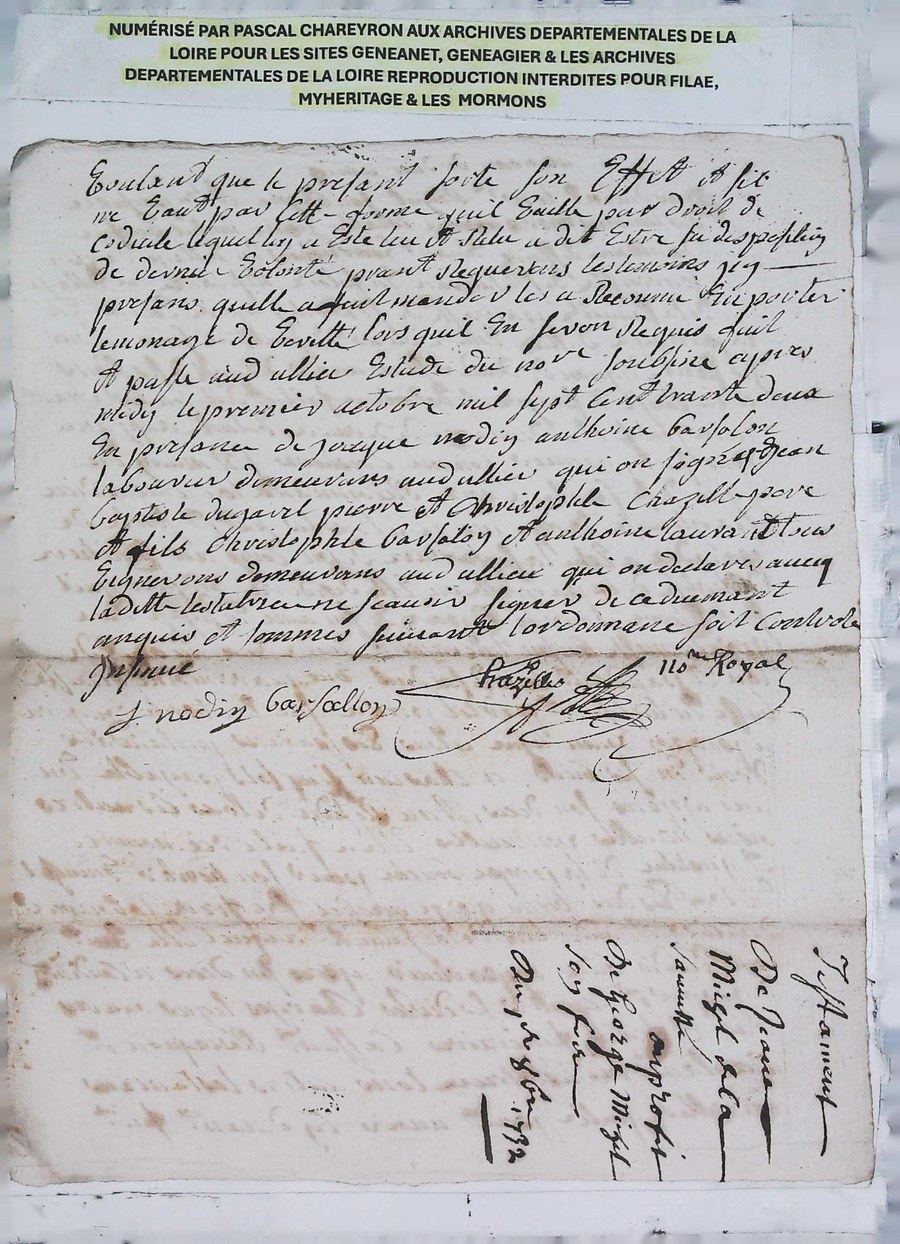 NUMÉRISÉ PAR PASCAL CHAREYRON AUX ARCHIVES DEPARTEMENTALES DE LA
LOIRE POUR LES SITES GENEANET, GENEAGIER & LES ARCHIVES
DEPARTEMENTALES DE LA LOIRE REPRODUCTION INTERDITES POUR FILAE,
MYHERITAGE & LES MORMONS
Voulant que le presant sorte son Effet Et sil
ne Vaut par Cette forme quil Vaille par droit de
Codicile lequel a Este leu Et Relu a dit Estre sa
de derniere Volonté priant Requerans les temoins
presans quelle a fait mander les a Reconnu En porter
temonage de Verité lors quil En seron Requis fait
Et passé aud allieu Estude du nore soubsine apres
midy le premier octobre mil sept Cent trante deux
En presance de jacque nodin anthoine barsalon
laboureur demeurans aud allieu qui on signés Jean
baptiste pierre Et Christophle Chazelle pere
Et fils Christophle barsalon Et anthoine laurant tous
Vignerons demeurans aud allieu qui on declaré avecq
laditte testatrice ne scavoir signer de ce duemant
anquis Et sommes suivant lordonnane soit Controle
Insinué
J nodin barsallon Chazelles nore Royal
Testament
De Jeane
Migt
au profi
De George Migt
son fre
Du pr 8bre 1732